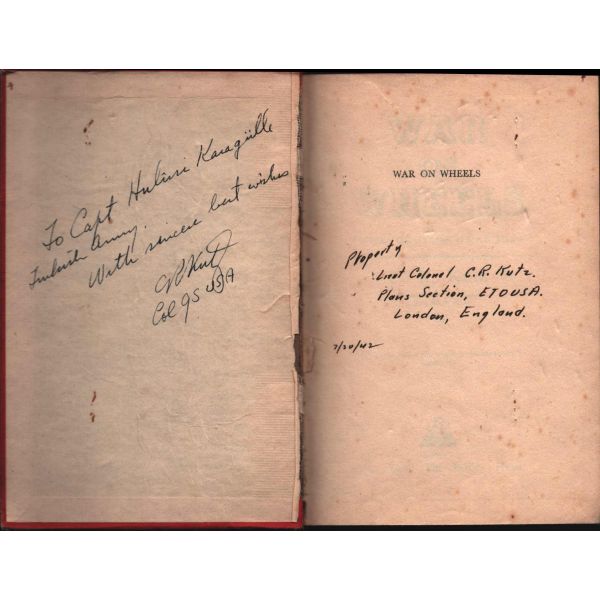 To Capt Hulusi Karagülle
Turkish Army.
With sincere best wishes
CR Kutz
Col GS USA
WAR ON WHEELS
Property
Lieut Colonel C.R. Kutz.
Plans Section, ETOUSA.
London, England.
7/20/42